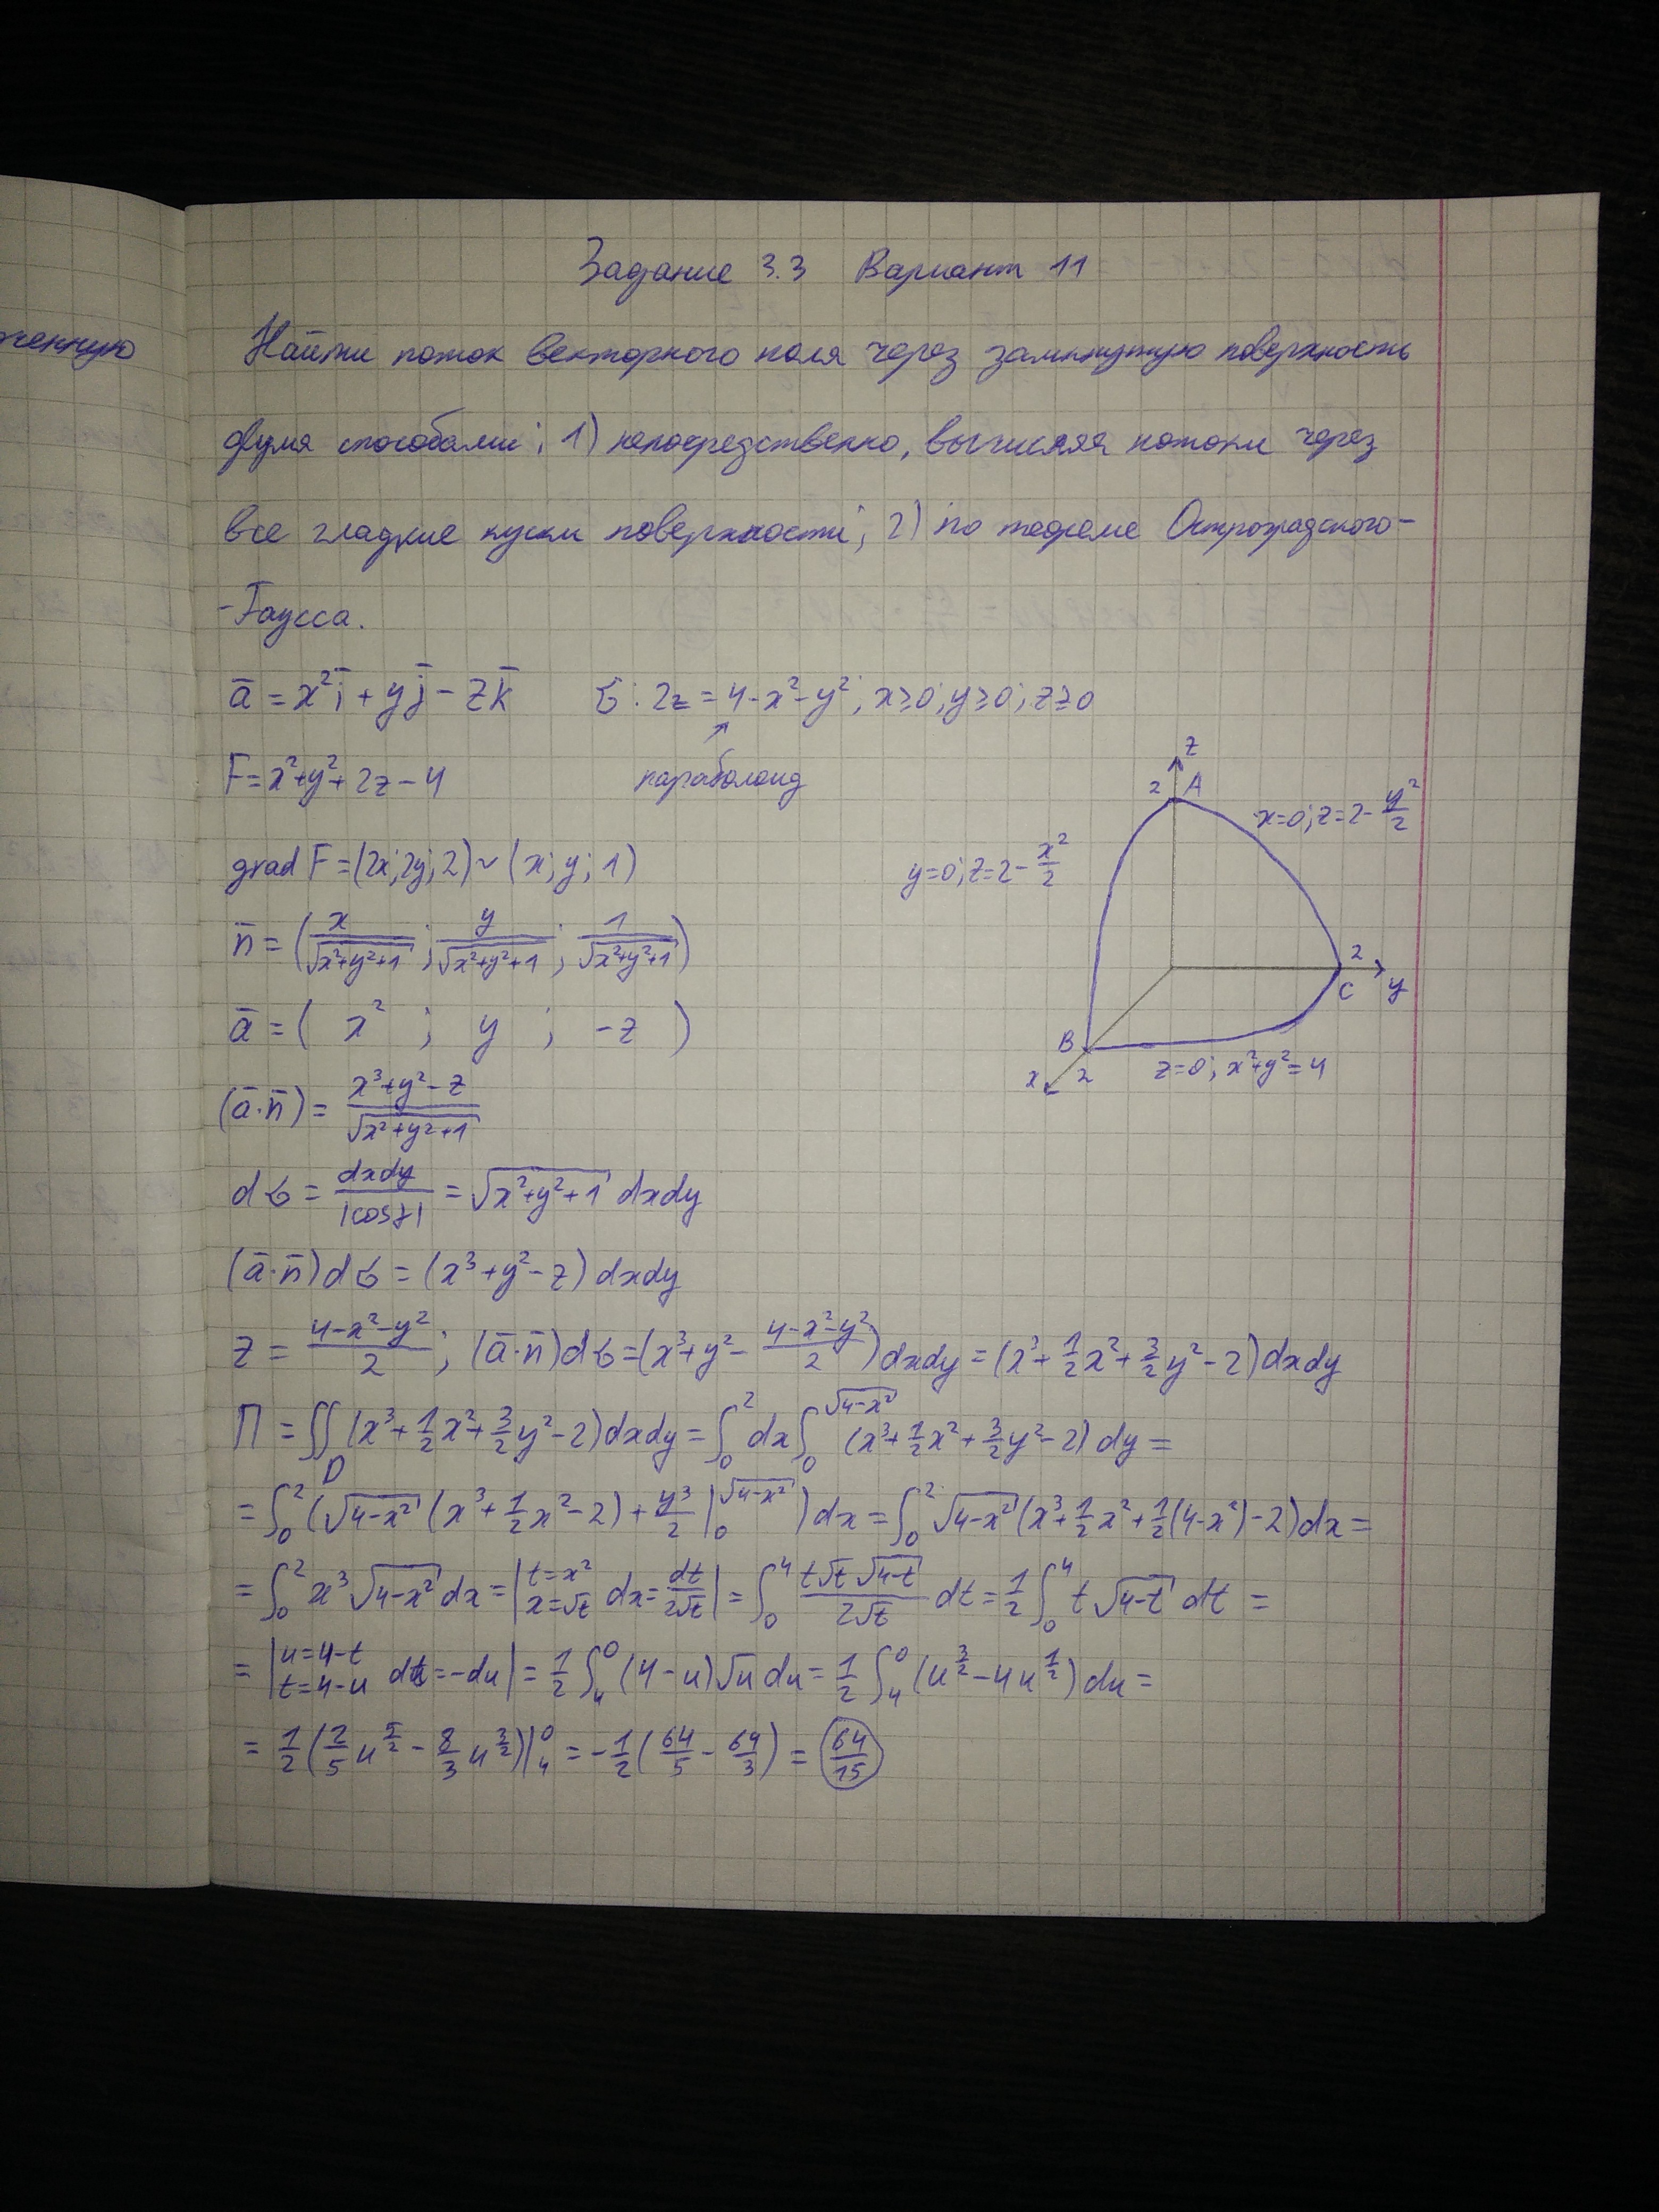 Задание 3.3 Вариант 11
ченную
Найти поток векторного поля через замкнутую поверхность
двумя способами: 1) непосредственно, вычисляя потоки через
все гладкие куски поверхности; 2) по теореме Остроградского-
-Гаусса.
ā = x²ī + yj̄ - zk̄ σ: 2z = 4-x²-y²; x≥0; y≥0; z≥0
F = x²+y²+2z-4 параболоид
z
2 A
x=0; z=2-y²/2
y=0; z=2-x²/2
2
C y
B
x 2
z=0; x²+y²=4
grad F = (2x; 2y; 2) ~ (x; y; 1)
n̄ = (x/√(x²+y²+1); y/√(x²+y²+1); 1/√(x²+y²+1))
ā = ( x² ; y ; -z )
(ā·n̄) = (x³+y²-z)/√(x²+y²+1)
dσ = dxdy/|cosγ| = √(x²+y²+1) dxdy
(ā·n̄)dσ = (x³+y²-z) dxdy
z = (4-x²-y²)/2; (ā·n̄)dσ = (x³+y²-(4-x²-y²)/2) dxdy = (x³+1/2x²+3/2y²-2)dxdy
П = ∬_D (x³+1/2x²+3/2y²-2)dxdy = ∫₀² dx ∫₀^√(4-x²) (x³+1/2x²+3/2y²-2) dy =
= ∫₀² (√(4-x²) (x³+1/2x²-2) + y³/2 |₀^√(4-x²)) dx = ∫₀² √(4-x²) (x³+1/2x²+1/2(4-x²)-2)dx =
= ∫₀² x³ √(4-x²) dx = |t=x² x=√t dx=dt/2√t| = ∫₀⁴ t√t √(4-t)/2√t dt = 1/2 ∫₀⁴ t √(4-t) dt =
= |u=4-t t=4-u dt=-du| = 1/2 ∫₄⁰ (4-u)√u du = 1/2 ∫₄⁰ (u^(3/2) - 4u^(1/2)) du =
= 1/2 (2/5 u^(5/2) - 8/3 u^(3/2))|₄⁰ = -1/2 (64/5 - 64/3) = 64/15